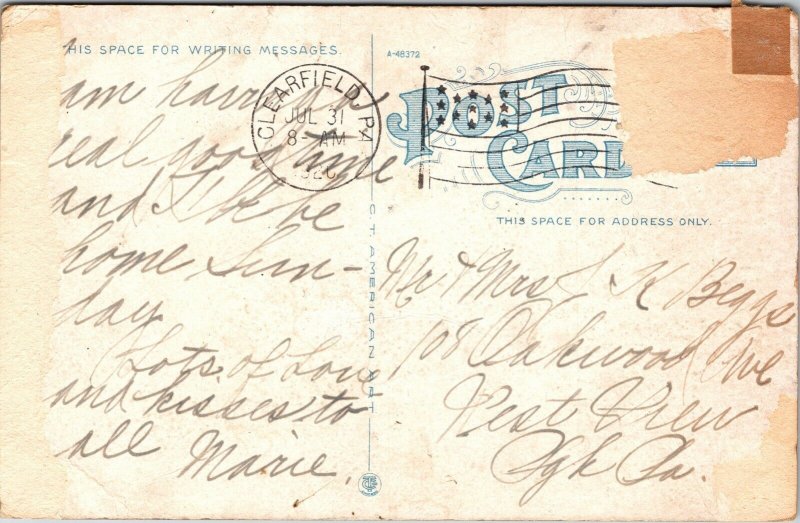 HIS SPACE FOR WRITING MESSAGES.
A-48372
CLEARFIELD PA.
JUL 31
8- AM
1920
POST
CARD
THIS SPACE FOR ADDRESS ONLY.
C.T. AMERICAN ART
am having a
real good time
and I'll be
home Sun-
day
Lots of Love
and kisses to
all Marie.
Mr & Mrs L K Beggs
108 Oakwood Ave
West View
Pgh Pa.